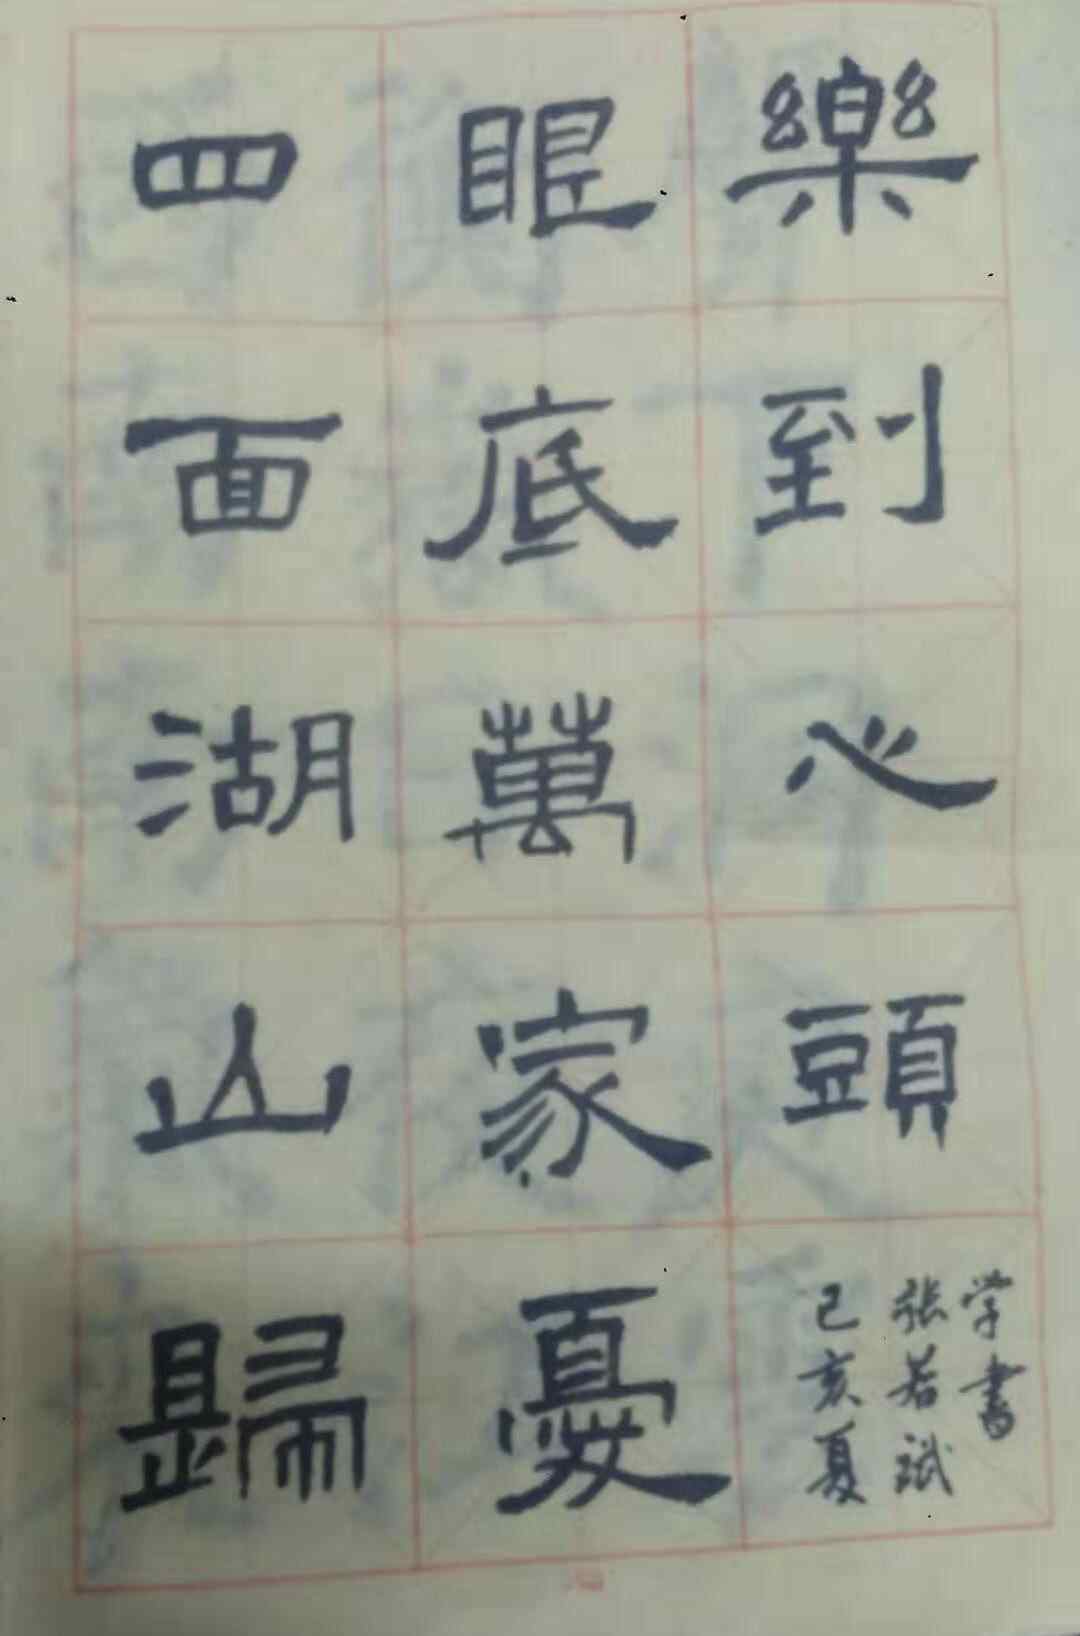 四面湖山歸
眼底萬家憂
樂到心頭
己亥夏
张若斌
学書